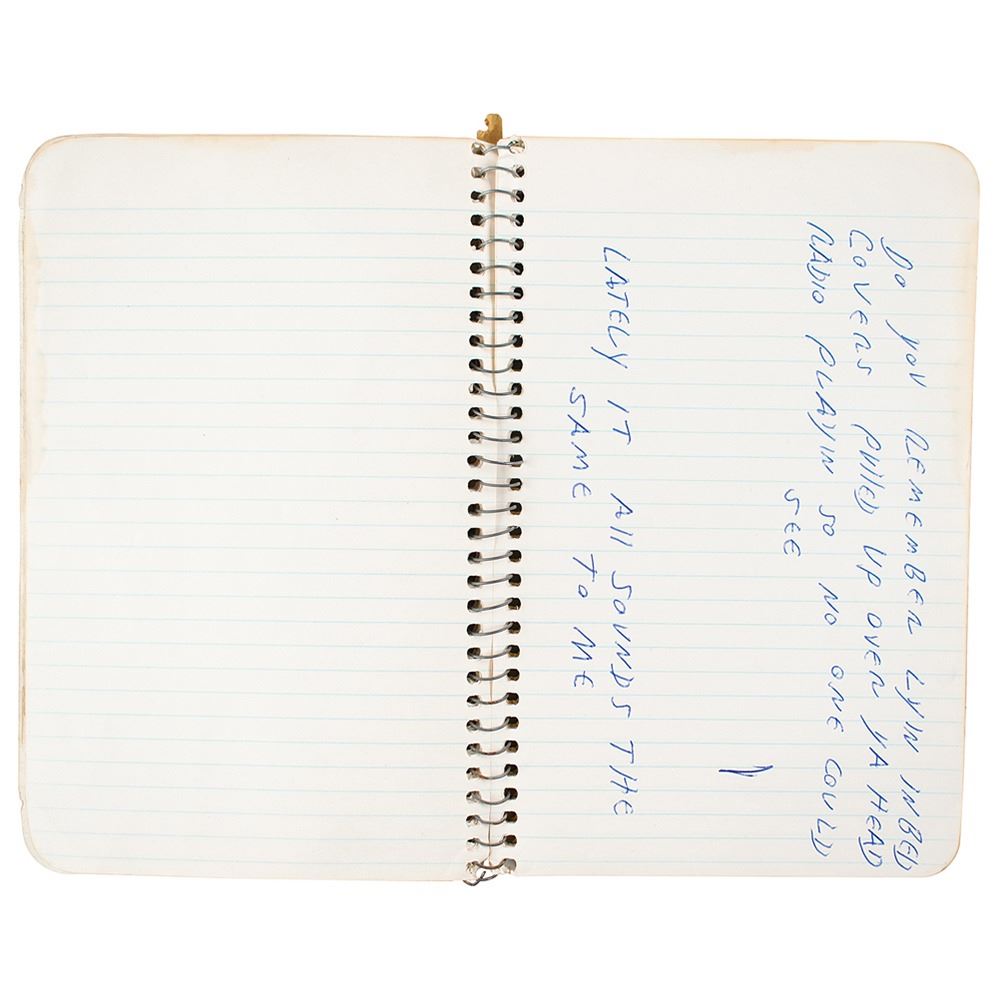 DO YOU REMEMBER LYIN INBED
COVERS PUllED UP OVER YA HEAD
RADIO PLAYIN SO NO ONE COULD
SEE
LATELY IT All SOUNDS THE
SAME TO ME